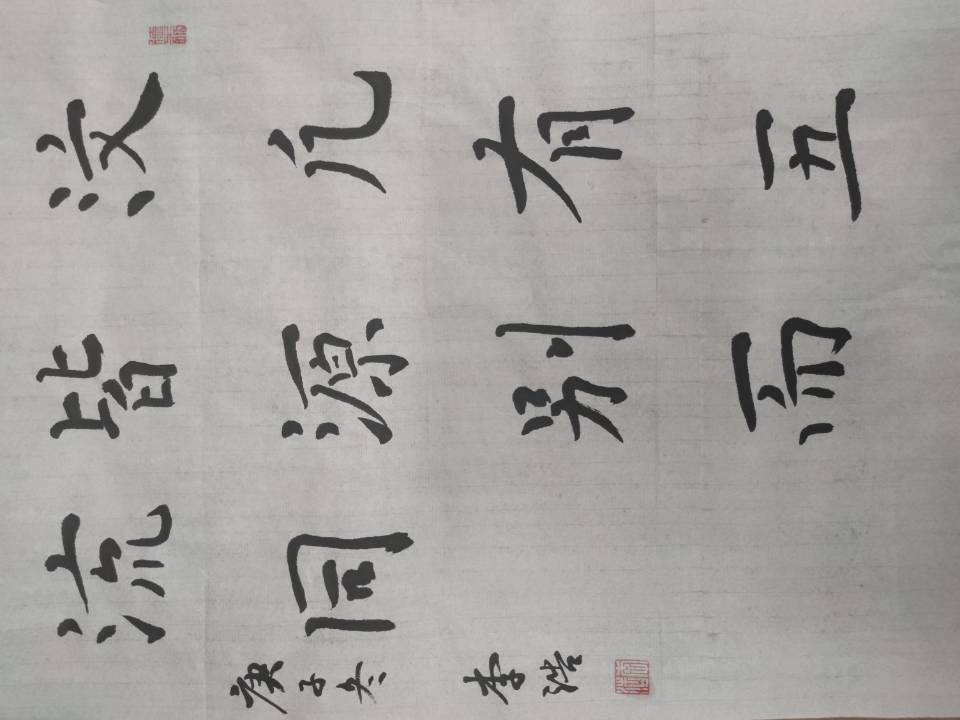 汶凡有五
皆源别而
流同
庚子冬
李浩